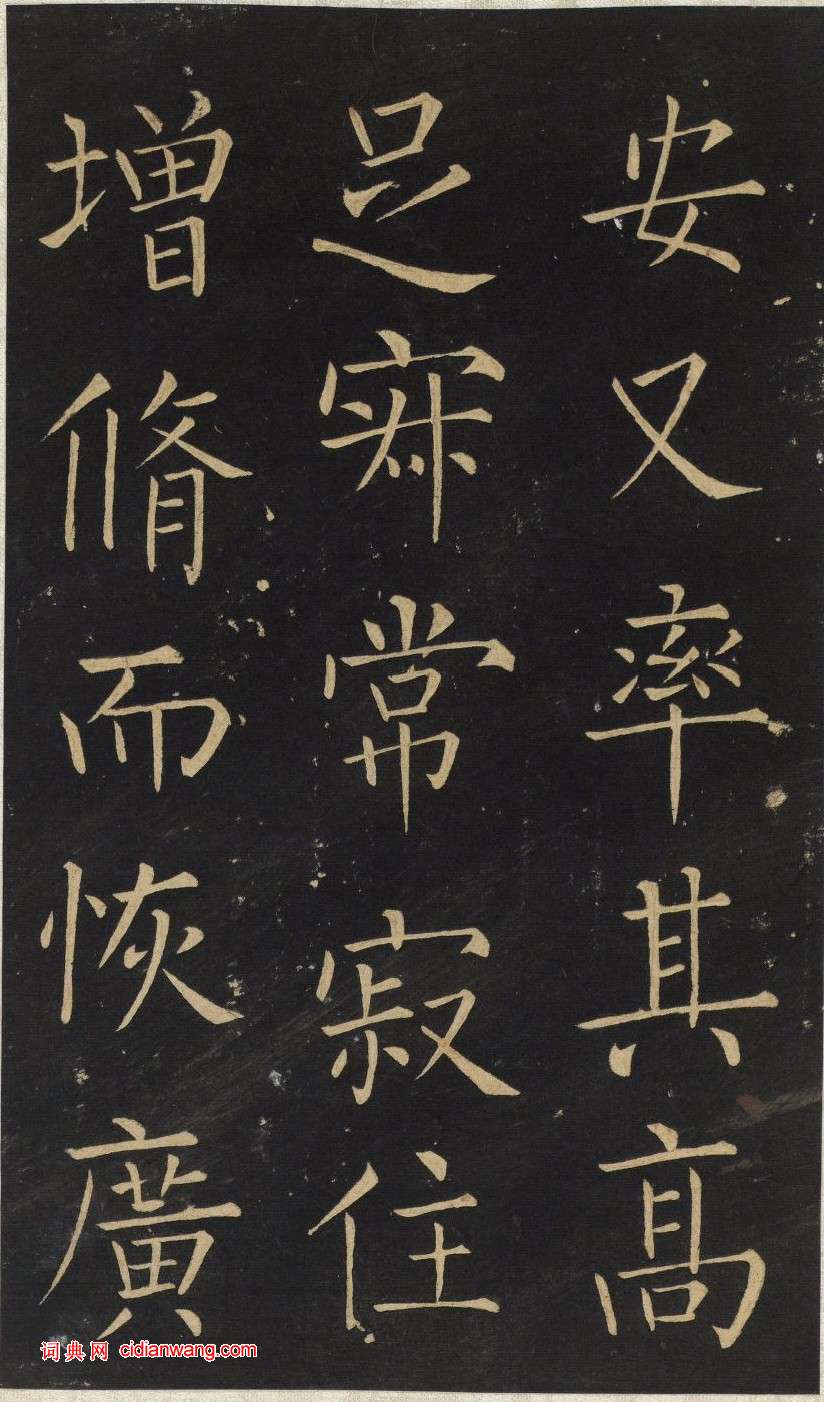 安又率其高
足常寂住
增脩而恢廣
词典网 cidianwang.com